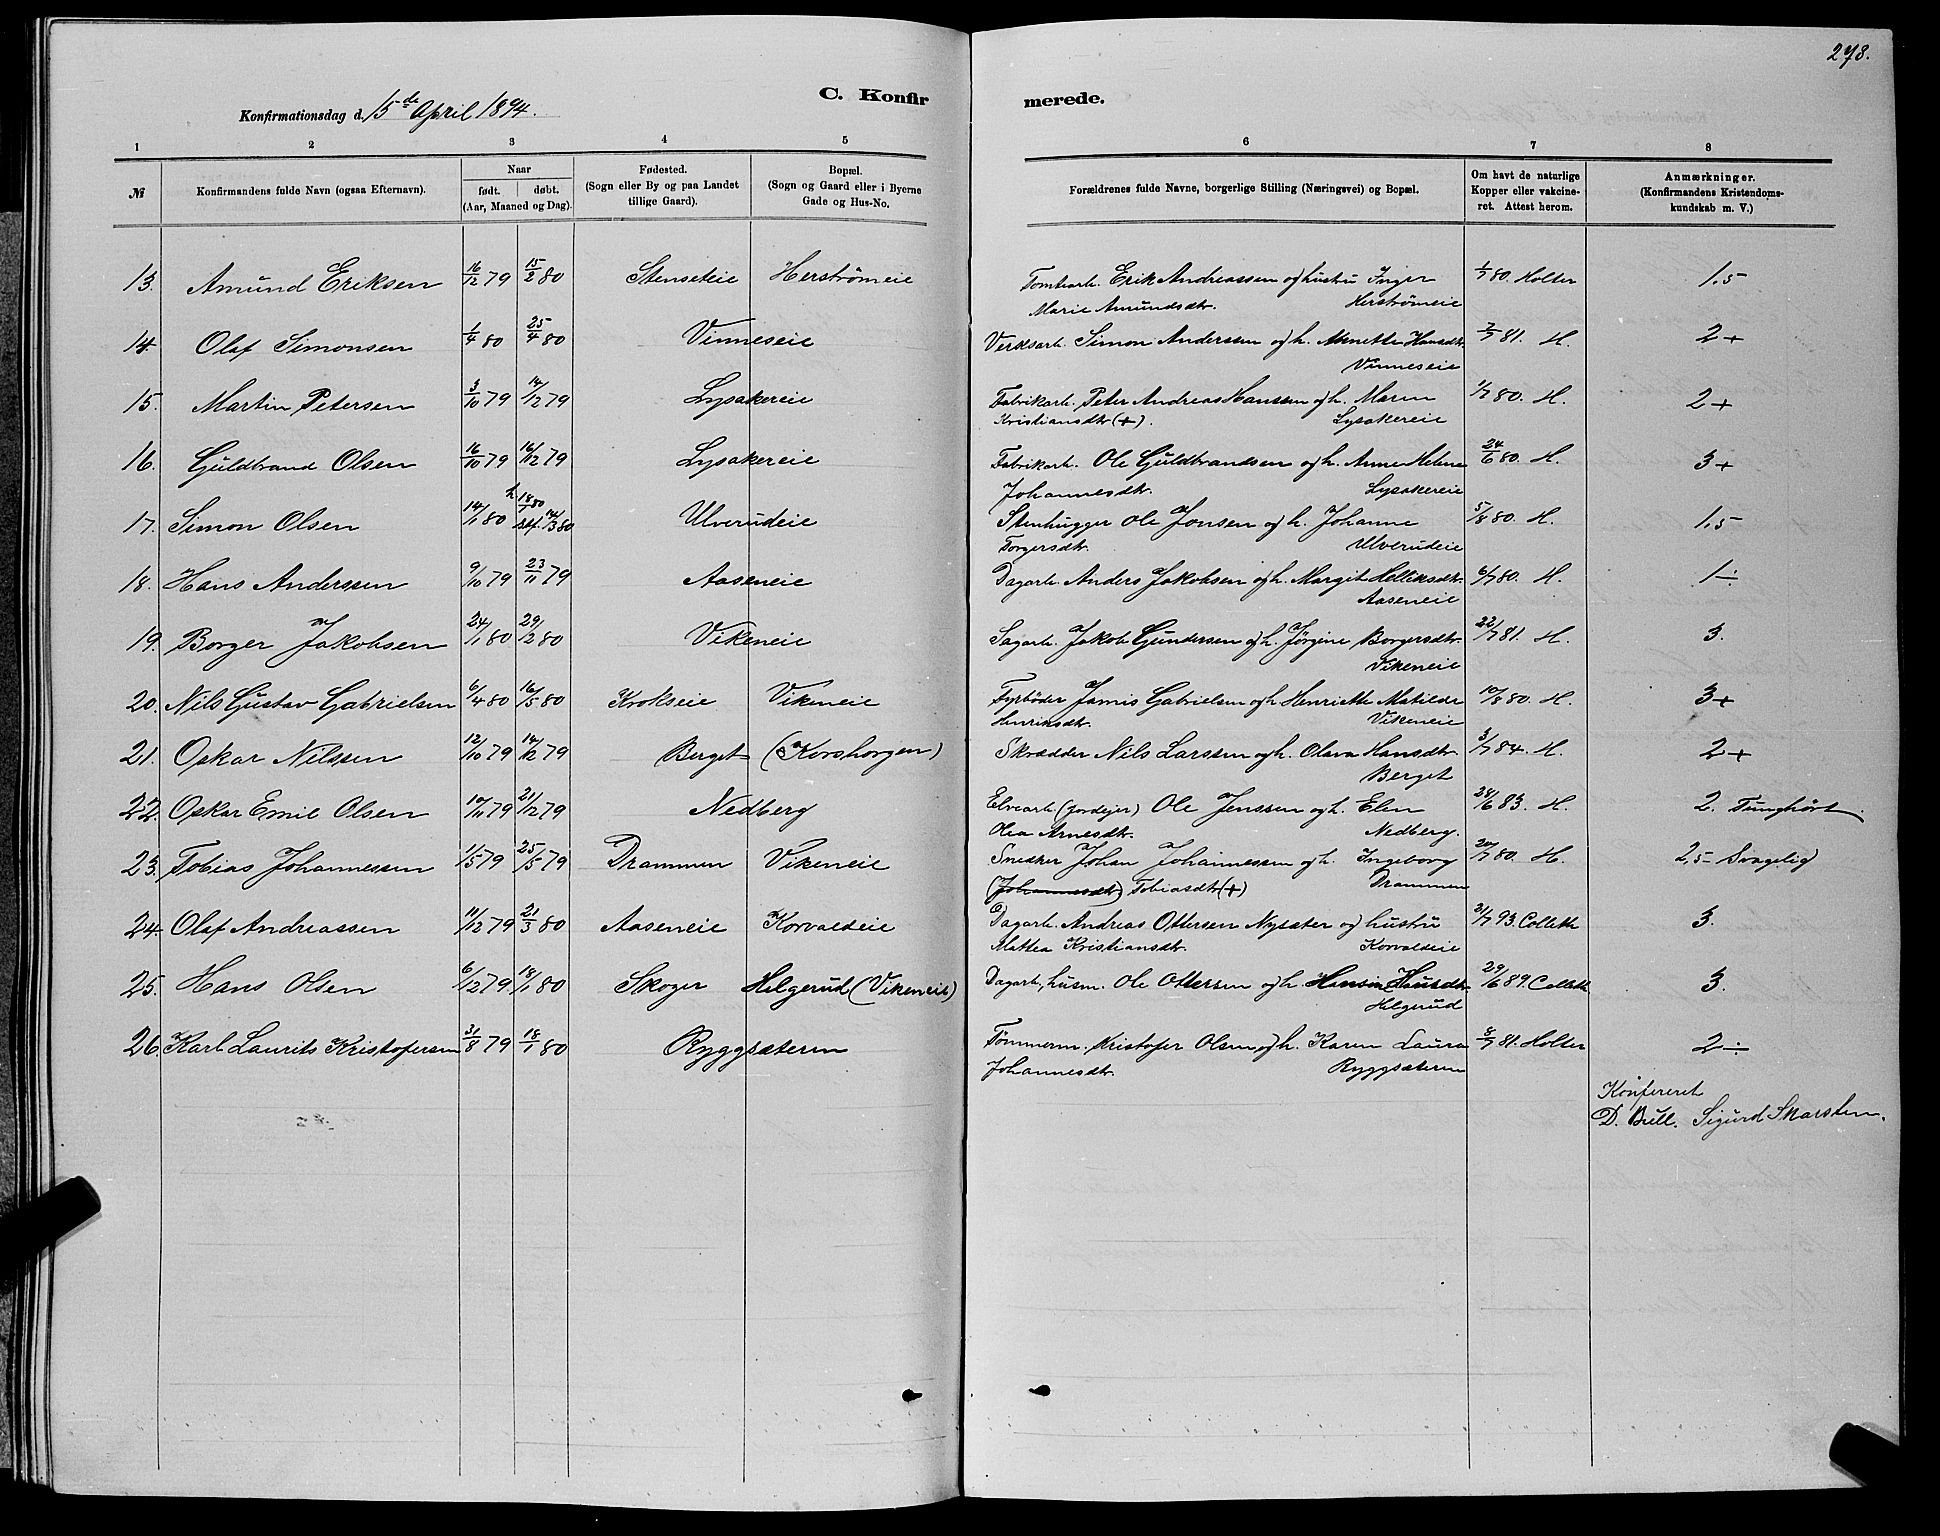 278.
C. Konfirmerede.
Konfirmationsdag d. 15de April 1894.
1 2 3 4 5 6 7 8
№ Konfirmandens fulde Navn (ogsaa Efternavn). Naar født. døbt. (Aar, Maaned og Dag). Fødested. (Sogn eller By og paa Landet tillige Gaard). Bopæl. (Sogn og Gaard eller i Byerne Gade og Hus-No. Forældrenes fulde Navne, borgerlige Stilling (Næringsvei) og Bopæl. Om havt de naturlige Kopper eller vakcineret. Attest herom. Anmærkninger. (Konfirmandens Kristendomskundskab m. V.)
13. Amund Eriksen 16/12 79 15/2 80 Stenseteie Herströmeie Tomtearb. Erik Andreassen og hustru Inger 1/7 80. Holter 1,5
Marie Amundsdtr. Herströmeie
14. Olaf Simonsen 1/4 80 25/4 80 Vinneseie Verksarb. Simon Anderssen og h. Annette Hansdtr. 7/7 81. H. 2+
Vinneseie
15. Martin Petersen 3/10 79 14/12 79 Lysakereie Fabrikarb. Peter Andreas Hanssen og h. Maren 1/7 80. H. 2+
Kristiansdtr (+). Lysakereie
16. Guldbrand Olsen 16/10 79 16/12 79 Lysakereie Fabrikarb. Ole Guldbrandsen og h. Anne Helene 24/6 80. H. 3+
Johannesdtr. Lysakereie
17. Simon Olsen 14/1 80 h. 18/1 80 st. 14/3 80 Ulverudeie Stenhugger Ole Jonsen og h. Johanne 5/8 80. H. 1,5
Torgersdtr. Ulverudeie
18. Hans Anderssen 9/10 79 23/11 79 Aaseneie Dagarb. Anders Jakobsen og h. Margit Helliksdtr. 6/7 80. H. 1÷
Aaseneie
19. Borger Jakobsen 24/1 80 29/2 80 Vikeneie Sagarb. Jakob Gundersen og h. Jørgine Borgersdtr. 22/7 81. H. 3.
Vikeneie
20. Nils Gustav Gabrielsen 6/4 80 16/5 80 Krokseie Vikeneie Fyrbøder Jamis Gabrielsen og h. Henriette Matilde 10/8 80. H. 3+
Henriksdtr. Vikeneie
21. Oskar Nilssen 12/10 79 14/12 79 Berget (Korshorgen) Skrædder Nils Larssen og h. Olava Hansdtr. 3/7 84. H. 2+
Berget
22. Oskar Emil Olsen 10/11 79 21/12 79 Nedberg Elvearb. (jordejer) Ole Jenssen og h. Elen 28/6 83. H. 2. Tunghört
Olea Arnesdtr. Nedberg.
23. Tobias Johannessen 1/5 79 25/5 79 Drammen Vikeneie Snedker Johan Johannessen og h. Ingeborg 20/7 80. H. 2,5 Svagelig
(Johannesdtr) Tobiasdtr (+) Drammen
24. Olaf Andreassen 11/12 79 21/3 80 Aaseneie Korvaldeie Dagarb. Andreas Ottersen Nysæter og hustru 31/7 93. Collett 3.
Mattea Kristiansdtr. Korvaldeie
25. Hans Olsen 6/12 79 18/1 80 Skoger Helgerud (Vikeneie) Dagarb., husm. Ole Ottersen og h. Hansine Hansdtr. 29/6 89. Collett 3.
Helgerud
26. Karl Laurits Kristofersen 31/8 79 18/1 80 Ryggsæteren Tømmerm. Kristofer Olsen og h. Karen Laura 8/7 81. Holter 2÷
Johannesdtr. Ryggsæteren
Konfereret
D. Bull. Sigurd Skarsten.